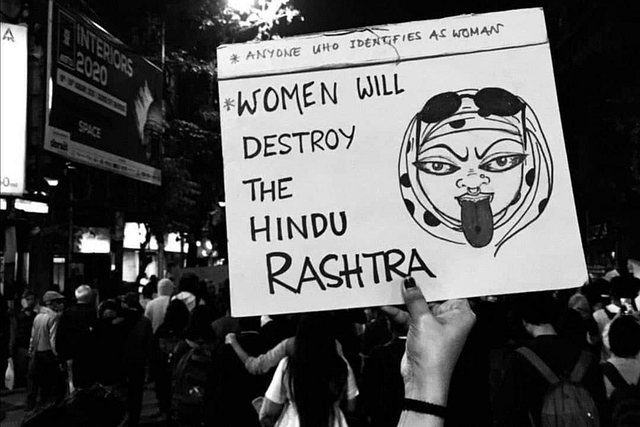 * ANYONE WHO IDENTIFIES AS WOMAN
*WOMEN WILL
DESTROY
THE
HINDU
RASHTRA
INTERIORS
2020
SPACE
A